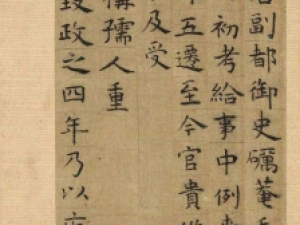 副都御史礪菴
初考給事中例
五遷至今官貴
及受
孺人重
政之四年乃以